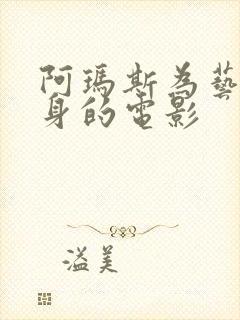 阿瑪斯為藝
身的電影
溢美